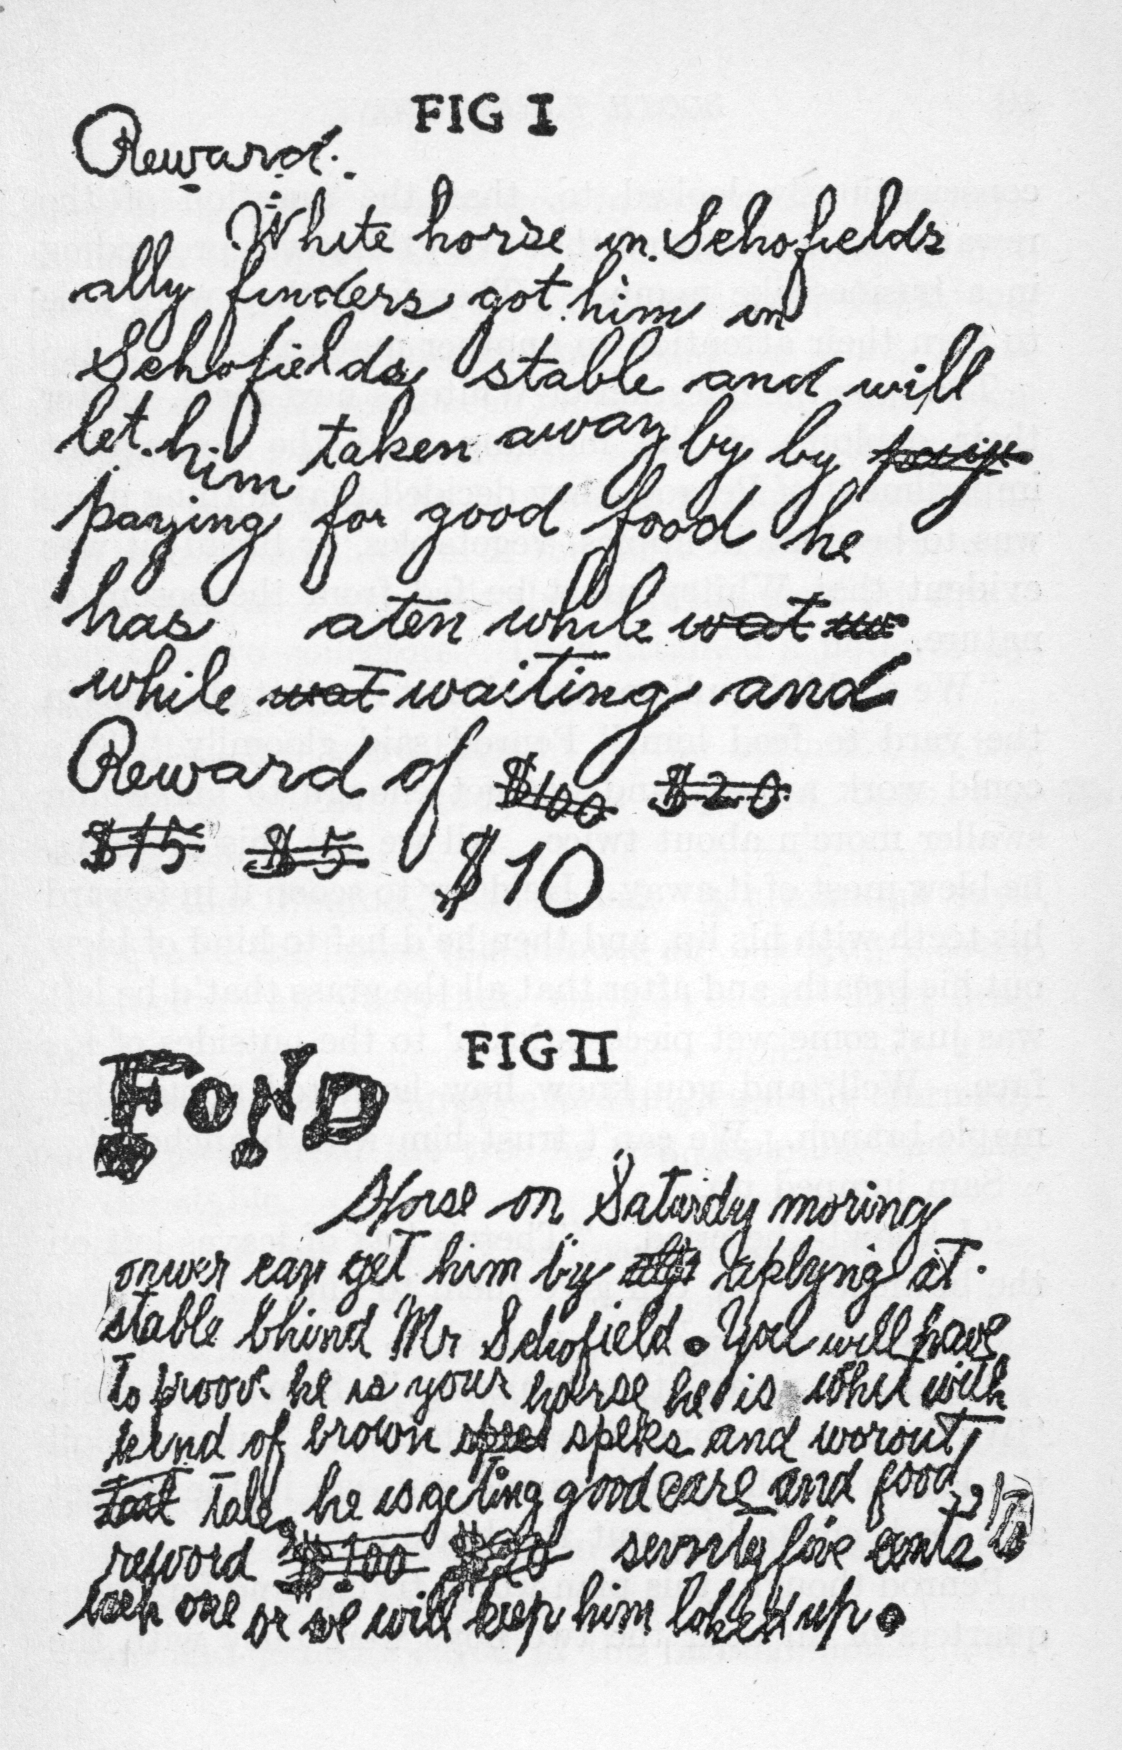 FIG I
Reward.
White horse in Schofields
ally finders got him in
Schofields stable and will
let him taken away by by pay
paying for good food he
has aten while wat
while wat waiting and
Reward of $100 $20
$15 $5 $10
FIG II
FOND
Horse on Saturdy moring
onwer can get him by applying at
stable bhind Mr Schofield. You will have
to proove he is your horse he is whit with
kind of brown spec speks and worout
tail he is geting good care and food
reword $100 $20 sevnty five cents to
each one or we will keep him locked up.